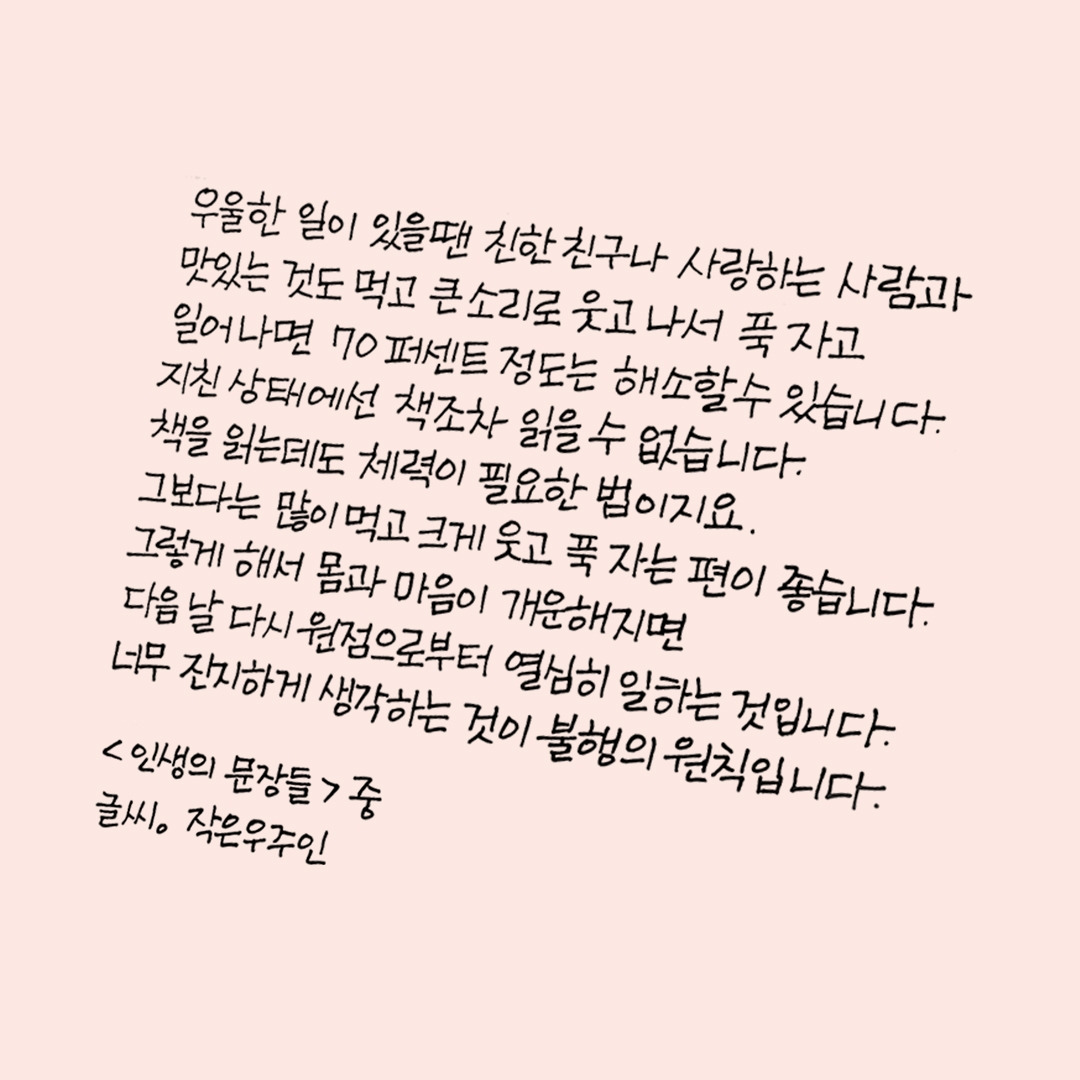 우울한 일이 있을땐 친한 친구나 사랑하는 사람과
맛있는 것도 먹고 큰 소리로 웃고 나서 푹 자고
일어나면 70 퍼센트 정도는 해소할 수 있습니다.
지친 상태에선 책조차 읽을 수 없습니다.
책을 읽는데도 체력이 필요한 법이지요.
그보다는 많이 먹고 크게 웃고 푹 자는 편이 좋습니다.
그렇게 해서 몸과 마음이 개운해지면
다음 날 다시 원점으로부터 열심히 일하는 것입니다.
너무 진지하게 생각하는 것이 불행의 원칙입니다.
<인생의 문장들> 중
글씨。 작은우주인